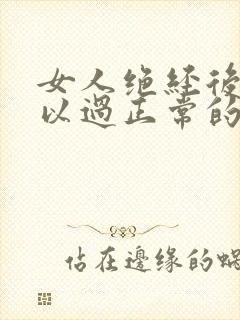 女人绝经後
以過正常的
佔在邊缘的蝸